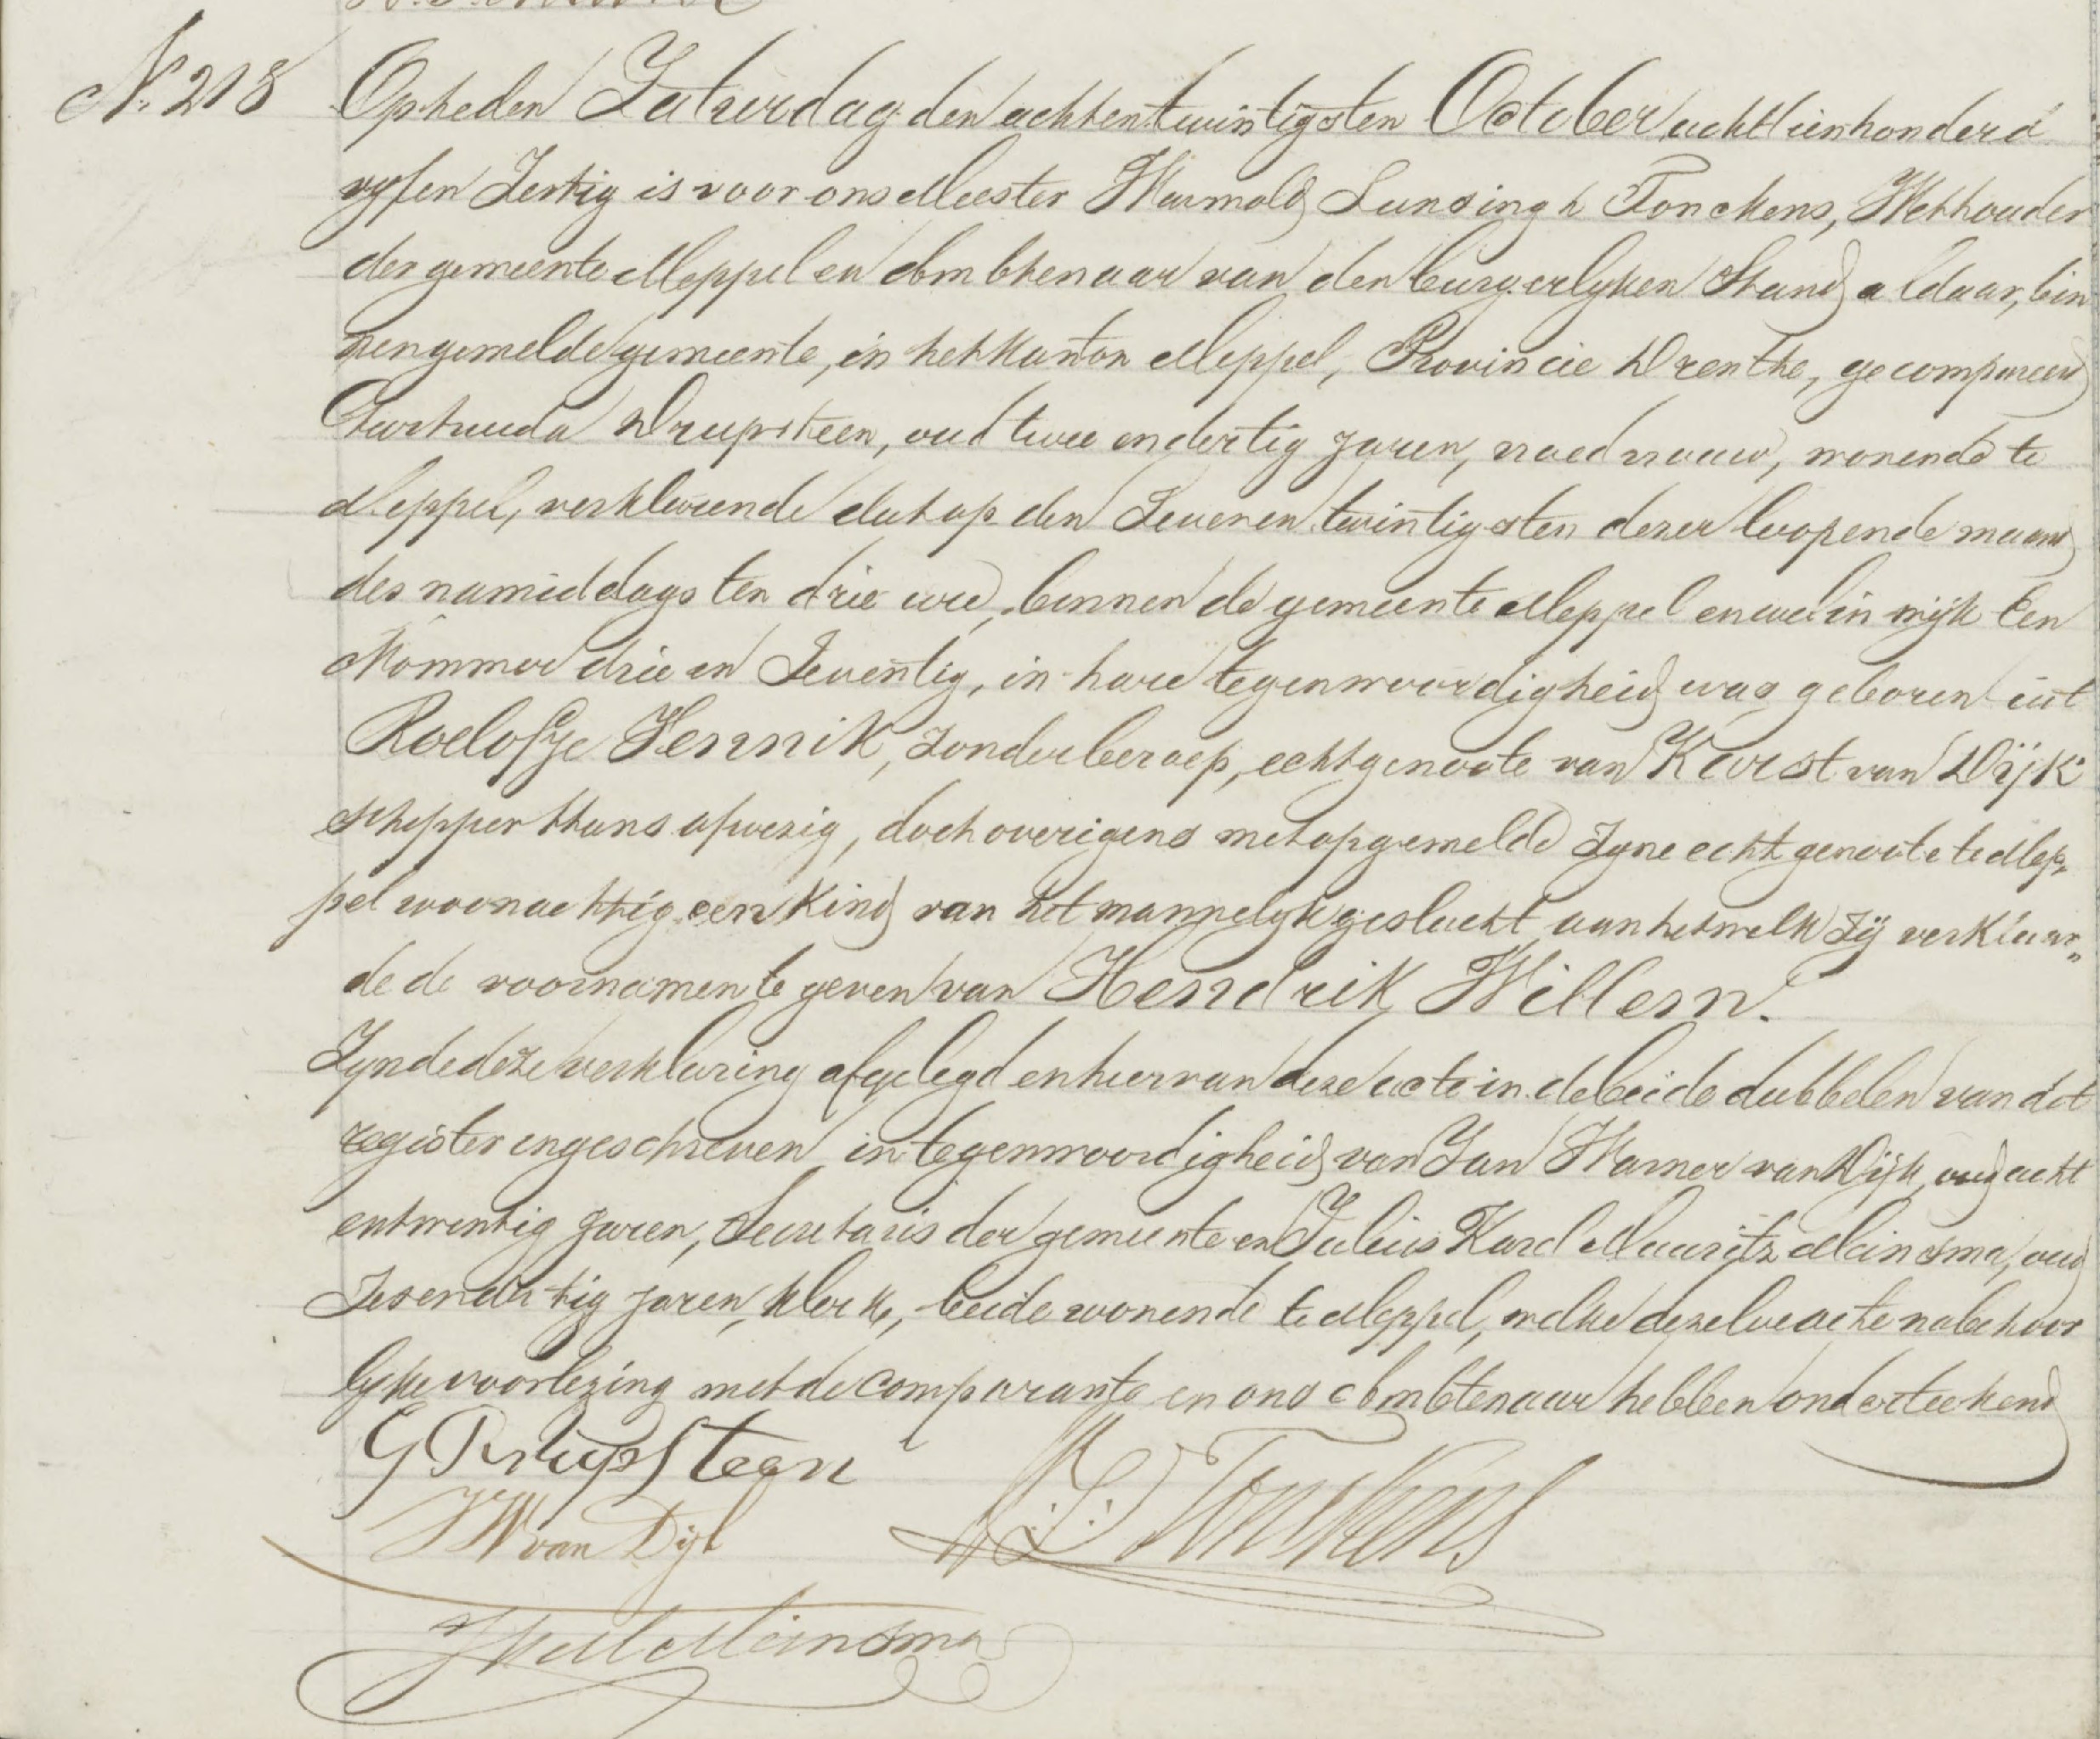 N. 218
Opheden Zaturdag den achtentwintigsten October achttienhonderd
vyfen Zestig is voor ons Meester Warmold Lunsingh Tonckens, Wethouder
der gemeente Meppel en Ambtenaar van den burgerlyken Stand aldaar, bin
nengemelde gemeente, in het kanton Meppel, Provincie Drenthe, gecompareerd
Geertruida Drupsteen, oud twee en dertig jaren, vroedvrouw, wonende te
Meppel, verklarende dat op den Zevenen twintigsten dezer loopende maand
des namiddags ten drie ure, binnen de gemeente Meppel en wel in wijk Een
Nommer drie en Zeventig, in hare tegenwoordigheid was geboren uit
Roelofje Hennik, zonder beroep, echtgenoote van Karst van Dijk
schipper thans afwezig, doch overigens met opgemelde Zyne echtgenoote te Mep„
pel woonachtig een Kind van het mannelyk geslacht, aan hetwelk Zij verklaar„
de de voornamen te geven van Hendrik Willem.
Zynde deze verklaring afgelegd en hiervan deze acte in de beide dubbelen van dit
register ingeschreven in tegenwoordigheid van Jan Warner van Dijk, oud acht
entwintig jaren, Secretaris der gemeente en Julius Karel Maurits Meinsma, oud
Zesendertig jaren, klerk, beide wonende te Meppel, welke dezelve acte na behoor
lyke voorlezing met de comparante en ons Ambtenaar hebben onderteekend
G Drupsteen
W. L. Tonckens
JW van Dijk
JKM Meinsma